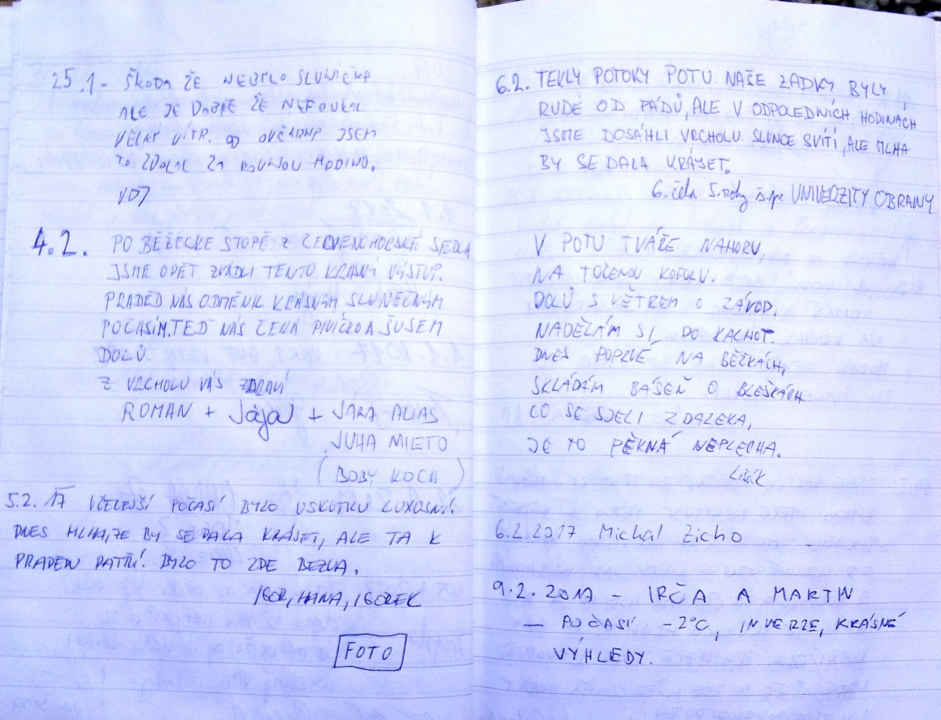 25.1- ŠKODA ŽE NEBYLO SLUNÍČKO
ALE JE DOBŘE ŽE NEFOUKAL
VELKÝ VÍTR. OD OVČÁRNY JSEM
TO ZDOLAL ZA ROVNOU HODINU.
4.2. PO BĚŽECKÉ STOPĚ Z ČERVENOHORSKÉ SEDLA
JSME OPĚT ZVÁDLI TENTO KRÁSNÝ VÝSTUP.
PRADĚD NÁS ODMĚNIL KRÁSNÝM SLUNEČNÝM
POČASÍM. TEĎ NÁS ČEKÁ PIVÍČKO A ŠUSEM
DOLŮ.
Z VRCHOLU VÁS ZDRAVÍ
ROMAN + Jája + JÁRA ALIAS
JUHA MIETO
(BOBY KOCH)
5.2.17 VČEREJŠÍ POČASÍ BYLO ÚSKUTKU LUXUSNÍ!
DNES MLHA, ŽE BY SE DALA KRÁJET, ALE TA K
PRADĚDU PATŘÍ! BYLO TO ZDE BEZVA.
IGOR, HANA, IGOREK
FOTO
6.2. TEKLY POTOKY POTU. NAŠE ZADKY BYLY
RUDÉ OD PÁDŮ, ALE V ODPOLEDNÍCH HODINÁCH
JSME DOSÁHLI VRCHOLU. SLUNCE SVÍTÍ, ALE MLHA
BY SE DALA KRÁJET.
6. četa 5. roty UNIVERZITY OBRANY
V POTU TVÁŘE NAHORU,
NA TOČENOU KOFOLU.
DOLŮ S VĚTREM O ZÁVOD,
NADĚLÁM SI DO KALHOT.
DNES POPRVÉ NA BĚŽKÁCH,
SKLÁDÁM BÁSEŇ O BLEŠKÁCH
CO SE SJELI Z DALEKA,
JE TO PĚKNÁ NEPLECHA.
6.2.2017 Michal Zicho
9.2.2017 - IRČA A MARTIN
- POČASÍ -2°C, INVERZE, KRÁSNÉ
VÝHLEDY.